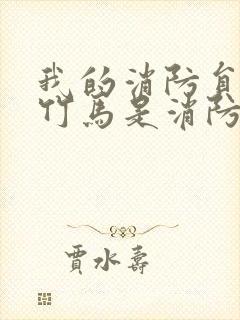 我的消防员
竹馬是消防
賈水壽